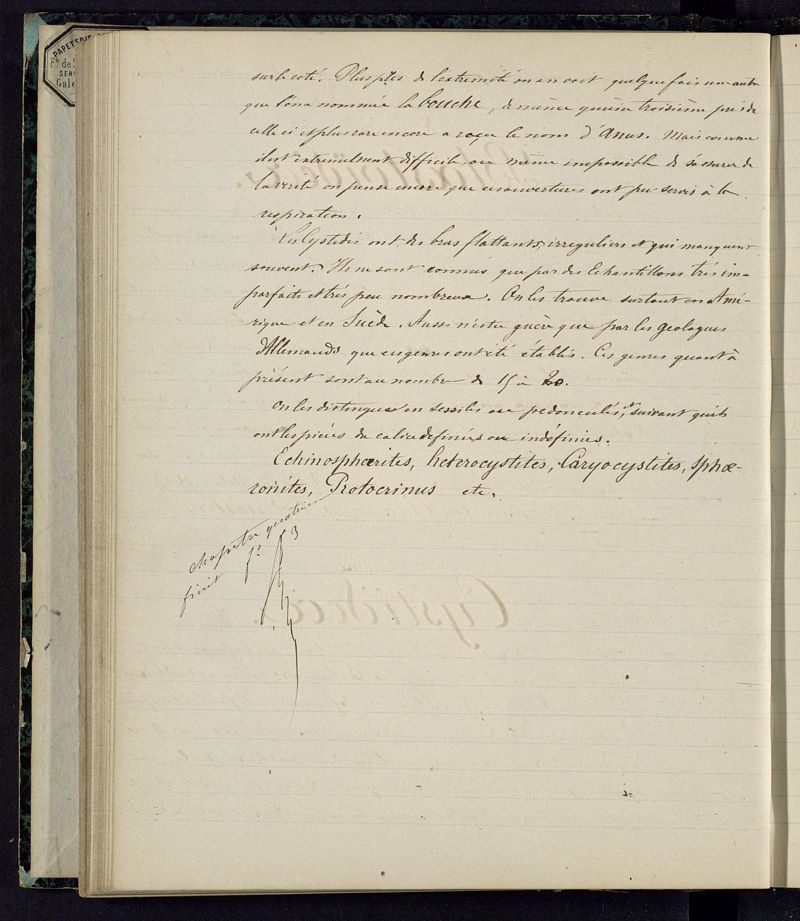 PAPETERIE
sur le coté. Plus près de l'extremité on en voit quelque fois une autre
que l'on a nommée la bouche, de même qu'une troisième près de
celle ci et plus rare encore a reçu le nom d'Anus. Mais comme
il est extremement difficile, ou même impossible de s'assurer de
la verité on pense encore que ces ouvertures ont pu servir à la
respiration.
Les Cystidés ont des bras flottants, irreguliers et qui manquent
souvent. Ils ne sont connus que par des Echantillons très im-
parfaits et très peu nombreux. On les trouve surtout en Amé-
rique et en Suède. Aussi n'est ce guère que par les geologues
Allemands que ces genres ont été établis. Ces genres quant à
présent sont au nombre de 15 à 20.
On les distingue en sessiles ou pedonculés, et suivant qu'ils
ont les pièces du calice definies ou indéfinies.
Echinosphœrites, heterocystites, Caryocystites, Sphœ-
ronites, Protocrinus etc.
chapitre
finit